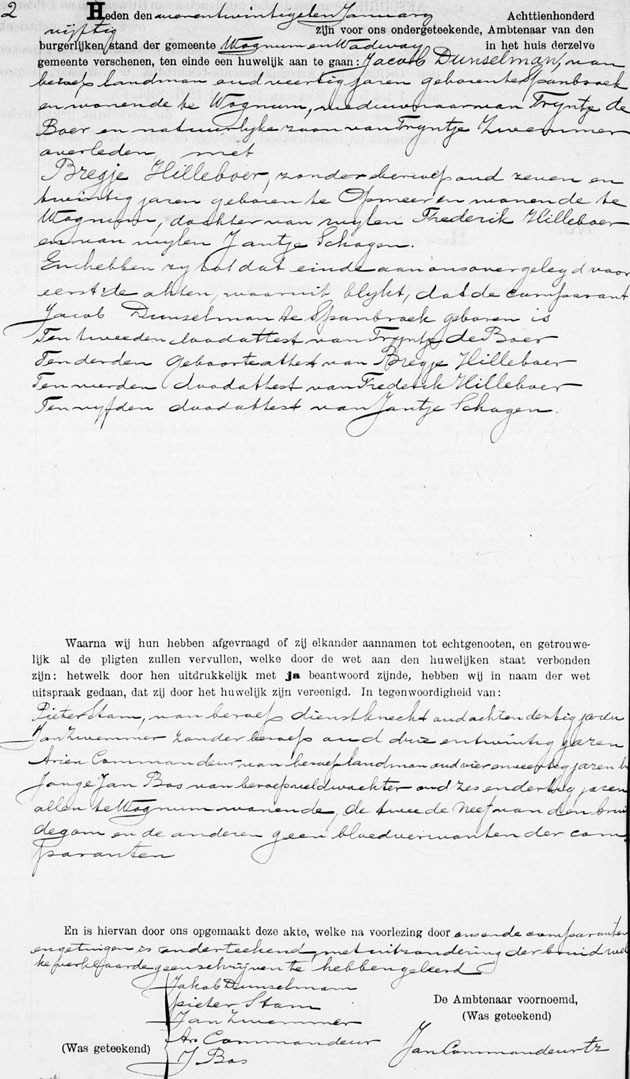 2
Heden den vierentwintigsten January Achttienhonderd
vijftig zijn voor ons ondergeteekende, Ambtenaar van den
burgerlijken stand der gemeente Wognum en Wadway in het huis derzelve
gemeente verschenen, ten einde een huwelijk aan te gaan: Jacob Dunselman, van
beroep landman oud veertig jaren geboren te Spanbroek
en wonende te Wognum, weduwnaar van Tryntje de
Boer en natuurlyke zoon van Tryntje Zwemmer
overleden met
Bregje Hilleboer, zonder beroep oud zeven en
twintig jaren geboren te Opmeer en wonende te
Wognum, dochter van wylen Frederik Hilleboer
en van wylen Jantje Schagen.
En hebben zy tot dat einde aan ons overgelegd voor
eerst de akten, waaruit blykt, dat de comparant
Jacob Dunselman te Spanbroek geboren is
Ten tweeden doodattest van Tryntje de Boer
Ten derden geboorteattest van Bregje Hilleboer
Ten vierden doodattest van Frederik Hilleboer
Ten vyfden doodattest van Jantje Schagen.
Waarna wij hun hebben afgevraagd of zij elkander aannamen tot echtgenooten, en getrouwe-
lijk al de pligten zullen vervullen, welke door de wet aan den huwelijken staat verbonden
zijn: hetwelk door hen uitdrukkelijk met ja beantwoord zijnde, hebben wij in naam der wet
uitspraak gedaan, dat zij door het huwelijk zijn vereenigd. In tegenwoordigheid van:
Pieter Stam, van beroep dienstknecht oud achtendertig jaren
Jan Zwemmer zonder beroep oud drie entwintig jaren
Arien Commandeur, van beroep landman oud vier en veertig jaren
Jonge Jan Bos van beroep veldwachter oud zes endertig jaren
allen te Wognum wonende, de tweede Neef van den brui
degom en de anderen geen bloedverwanten der com
paranten
En is hiervan door ons opgemaakt deze akte, welke na voorlezing door ons en de comparanten
en getuigen is onderteekend, met uitzondering der bruid wel
ke verklaarde geen schrijven te hebben geleerd
Jakob Dunselman
pieter Stam
Jan Zwemmer
Ar Commandeur
J Bos
(Was geteekend)
De Ambtenaar voornoemd,
(Was geteekend)
Jan Commandeur tz